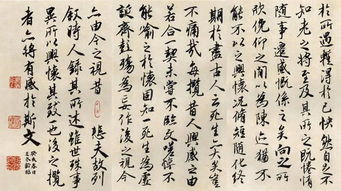 於所遇輒得於己快然自足不
知老之將至及其所之既惓情
隨事遷感慨係之矣向之所
欣俛仰之間以為陳迹猶不
能不以之興懷況脩短隨化終
期於盡古人云死生亦大矣豈
不痛哉每攬昔人興感之由
若合一契未嘗不臨文嗟悼不
能喻之於懷固知一死生為虛
誕齊彭殤為妄作後之視今
亦由今之視昔悲夫故列
叙時人錄其所述雖世殊事
異所以興懷其致一也後之攬
者亦將有感於斯文